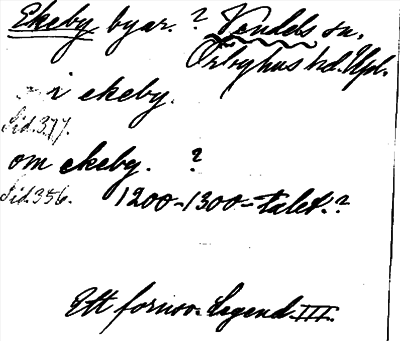 Ekeby byar. ? Vendels sn.
Örbyhus hd. Upl.
i ekeby.
Sid. 377.
om ekeby. ?
Sid. 356. 1200-1300-talet. ?
Ett fornsv. Legend. III.